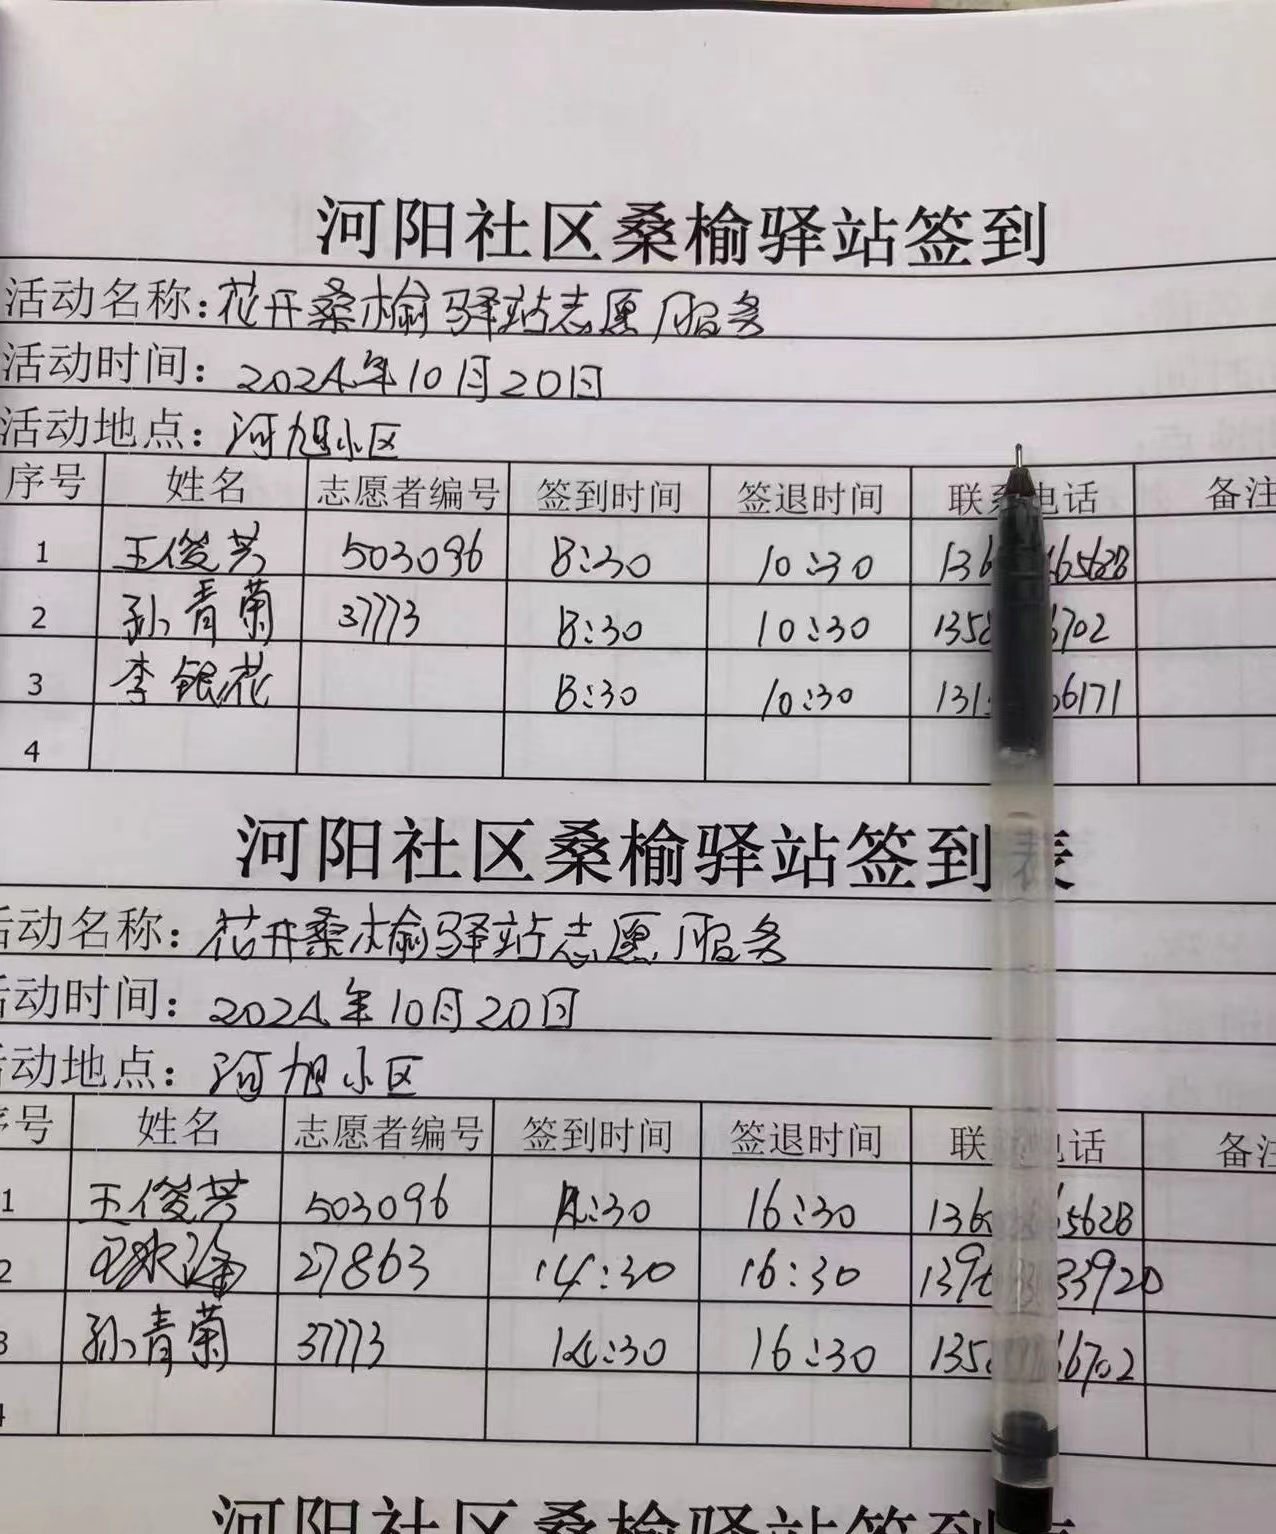 河阳社区桑榆驿站签到
活动名称：花开桑榆驿站志愿服务
活动时间：2024年10月20日
活动地点：河旭小区
序号 姓名 志愿者编号 签到时间 签退时间 联系电话 备注
1 王俊芳 503096 8:30 10:30 136 65628
2 孙青菊 37773 8:30 10:30 135 6702
3 李银花 8:30 10:30 131 66171
4
河阳社区桑榆驿站签到表
活动名称：花开桑榆驿站志愿服务
活动时间：2024年10月20日
活动地点：河旭小区
序号 姓名 志愿者编号 签到时间 签退时间 联 电话 备注
1 王俊芳 503096 14:30 16:30 136 65628
2 27863 14:30 16:30 139 33920
3 孙青菊 37773 14:30 16:30 135 66702
4
河阳社区桑榆驿站签到表